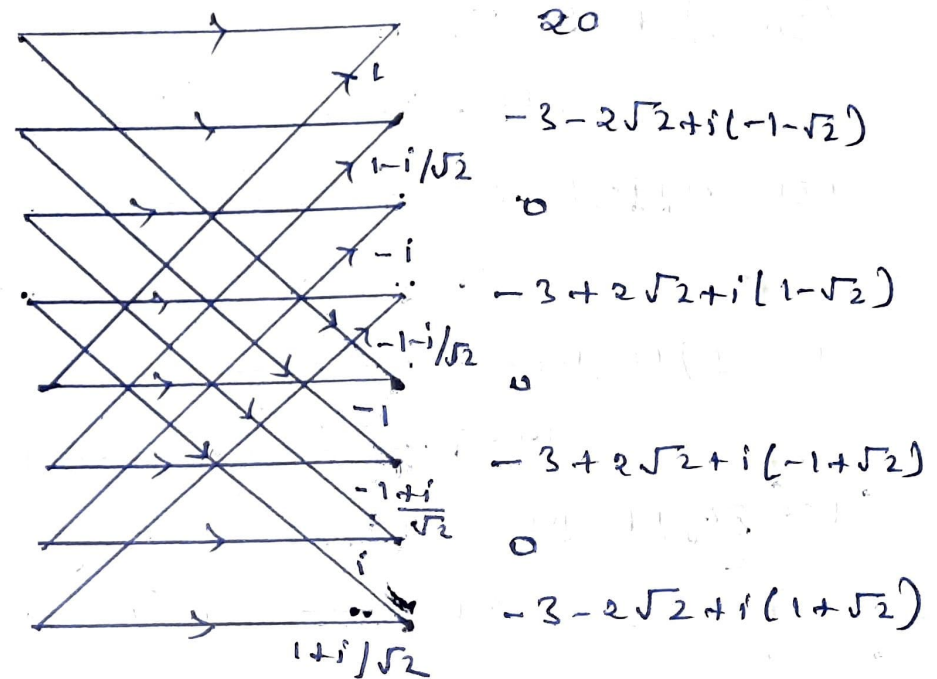 20
1
-3-2√2+i(-1-√2)
1-i/√2
0
-i
-3+2√2+i(1-√2)
-1-i/√2
0
-1
-3+2√2+i(-1+√2)
-1+i/√2
0
i
-3-2√2+i(1+√2)
1+i/√2